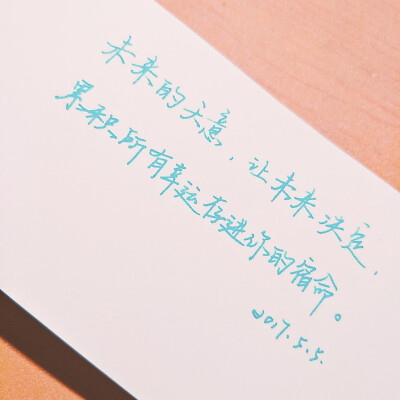 未来的天意，让未来决定，
累积所有幸运存进你的宿命。
2017.5.5.